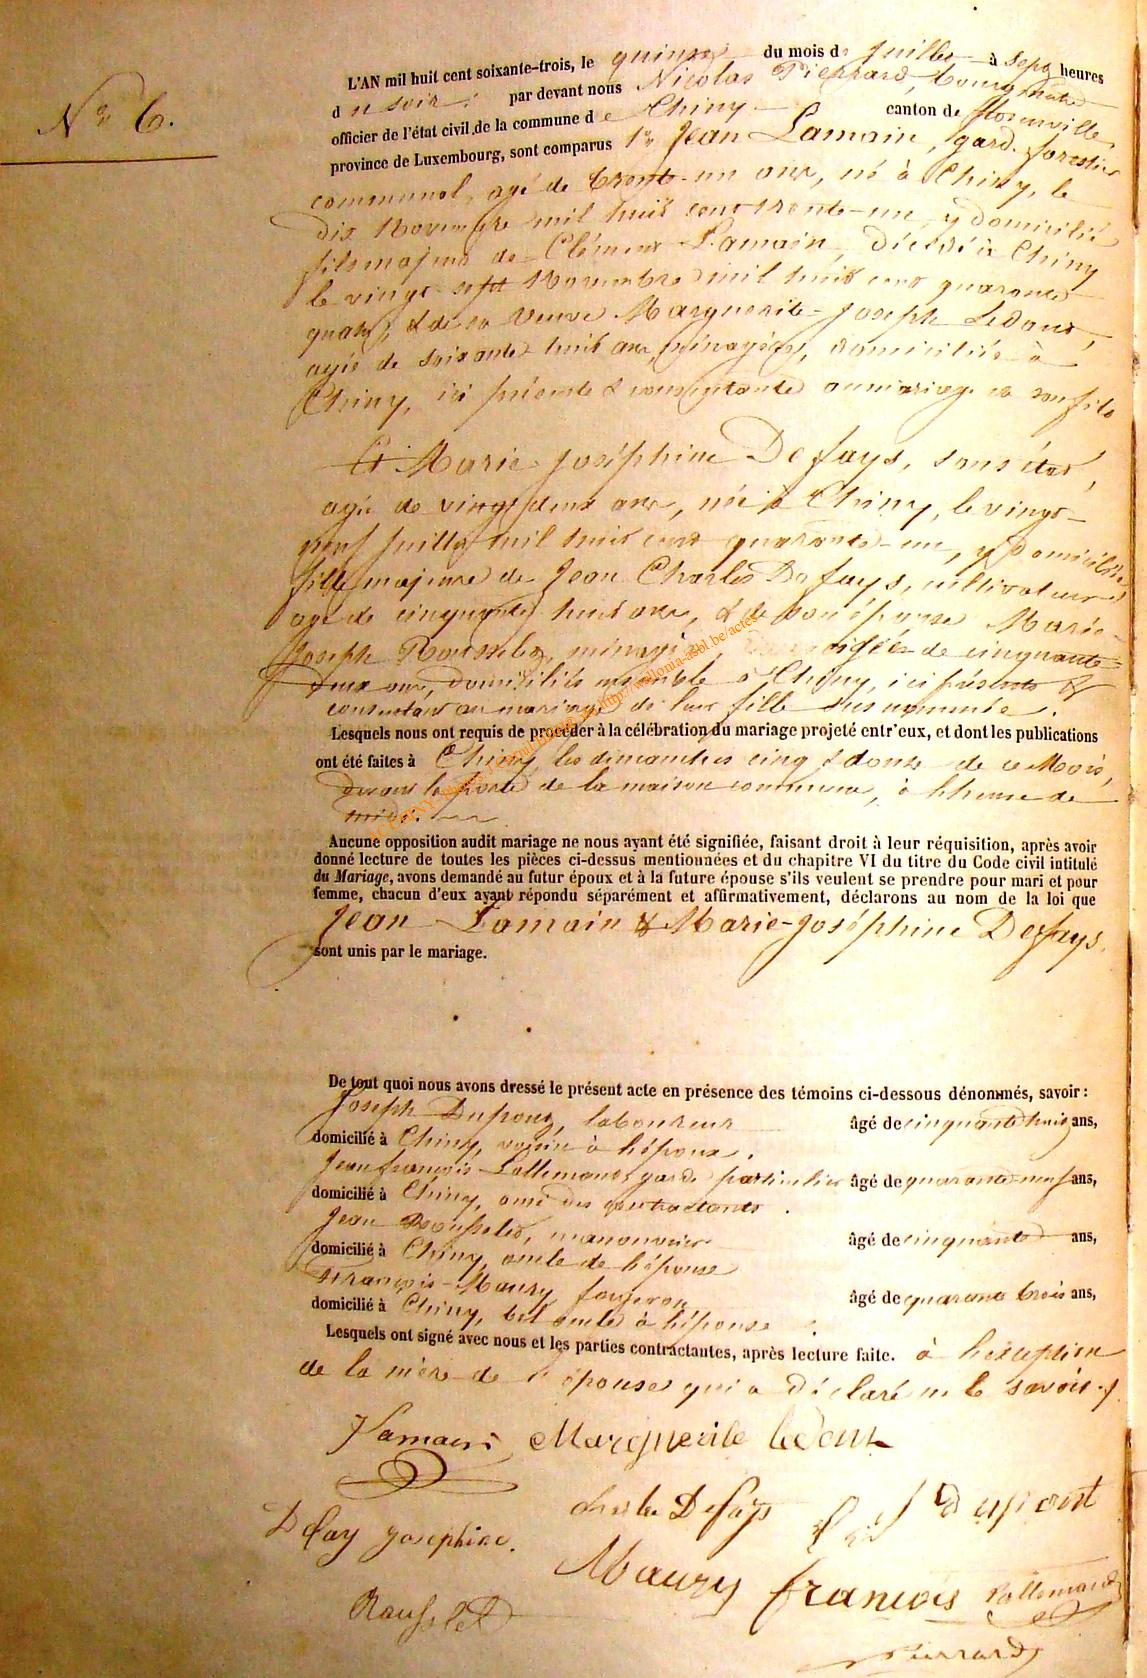 N° 6.
L'AN mil huit cent soixante-trois, le quinze du mois de juillet à sept heures
du soir, par devant nous Nicolas Pierrard, bourgmestre
officier de l'état civil de la commune de Chiny canton de Florenville
province de Luxembourg, sont comparus 1° Jean Lamain, garde forestier
communal, agé de trente-un ans, né à Chiny, le
dix Novembre mil huit cent trente-un, y domicilié
fils majeur de Clément Lamain, décédé à Chiny
le vingt-sept Novembre mil huit cent quarante
quatre, & de sa veuve Marguerite-Joseph Ledoux,
agée de soixante huit ans, ménagère, domiciliée à
Chiny, ici présente & consentante au mariage de son fils
Et Marie Joséphine Defays, sans état,
agée de vingt deux ans, née à Chiny, le vingt-
neuf juillet mil huit cent quarante-un, y domiciliée
fille majeure de Jean Charles Defays, cultivateur
agé de cinquante huit ans, & de son épouse Marie
Joseph Rousselet, ménagère, agée de cinquante-
deux ans, domiciliés ensemble à Chiny, ici présents &
consentant au mariage de leur fille susnommée.
Lesquels nous ont requis de procéder à la célébration du mariage projeté entr'eux, et dont les publications
ont été faites à Chiny, les dimanches cinq & douze de ce Mois,
devant la porte de la maison commune, à l'heure de
midi.
Aucune opposition audit mariage ne nous ayant été signifiée, faisant droit à leur réquisition, après avoir
donné lecture de toutes les pièces ci-dessus mentionnées et du chapitre VI du titre du Code civil intitulé
du Mariage, avons demandé au futur époux et à la future épouse s'ils veulent se prendre pour mari et pour
femme, chacun d'eux ayant répondu séparément et affirmativement, déclarons au nom de la loi que
Jean Lamain & Marie-Joséphine Defays
sont unis par le mariage.
De tout quoi nous avons dressé le présent acte en présence des témoins ci-dessous dénommés, savoir :
Joseph Dupont, laboureur âgé de cinquante huit ans,
domicilié à Chiny, voisin à l'époux.
Jean françois Lallemand, garde particulier âgé de quarante-neuf ans,
domicilié à Chiny, ami des contractants.
Jean Rousselet, manouvrier âgé de cinquante ans,
domicilié à Chiny, oncle de l'épouse
François Maury, forgeron âgé de quarante trois ans,
domicilié à Chiny, bel oncle à l'épouse.
Lesquels ont signé avec nous et les parties contractantes, après lecture faite. à l'exception
de la mère de l'épouse qui a déclaré ne le savoir.
J Lamain Marguerite ledoux
charles Defays J dupont
Defay josephine.
Maury françois Lallemand
Rousselet
Pierrard
http://wallonia-asbl.be/actes